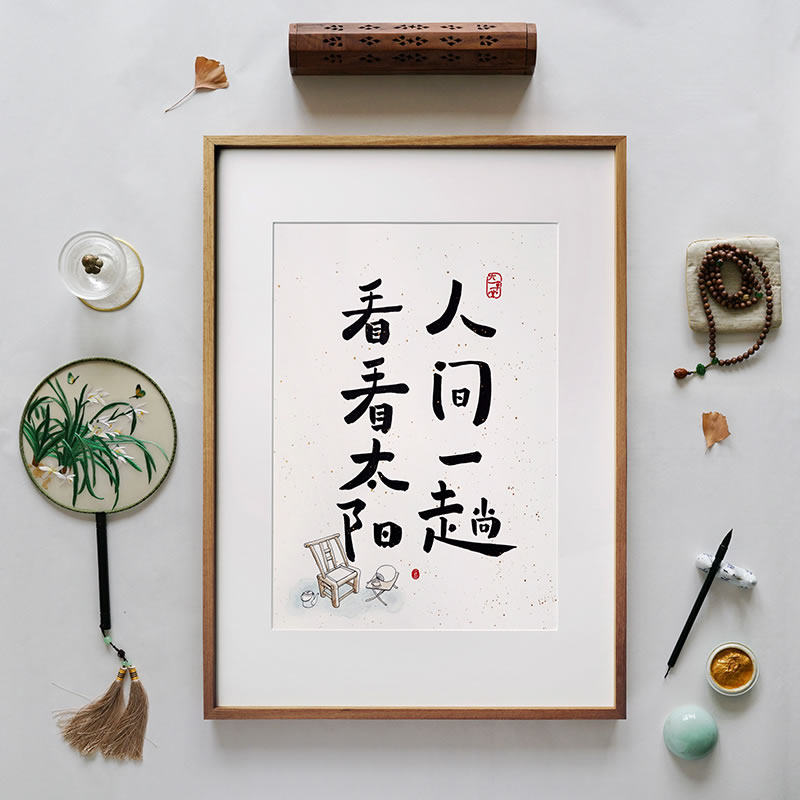 人间一趟
看看太阳